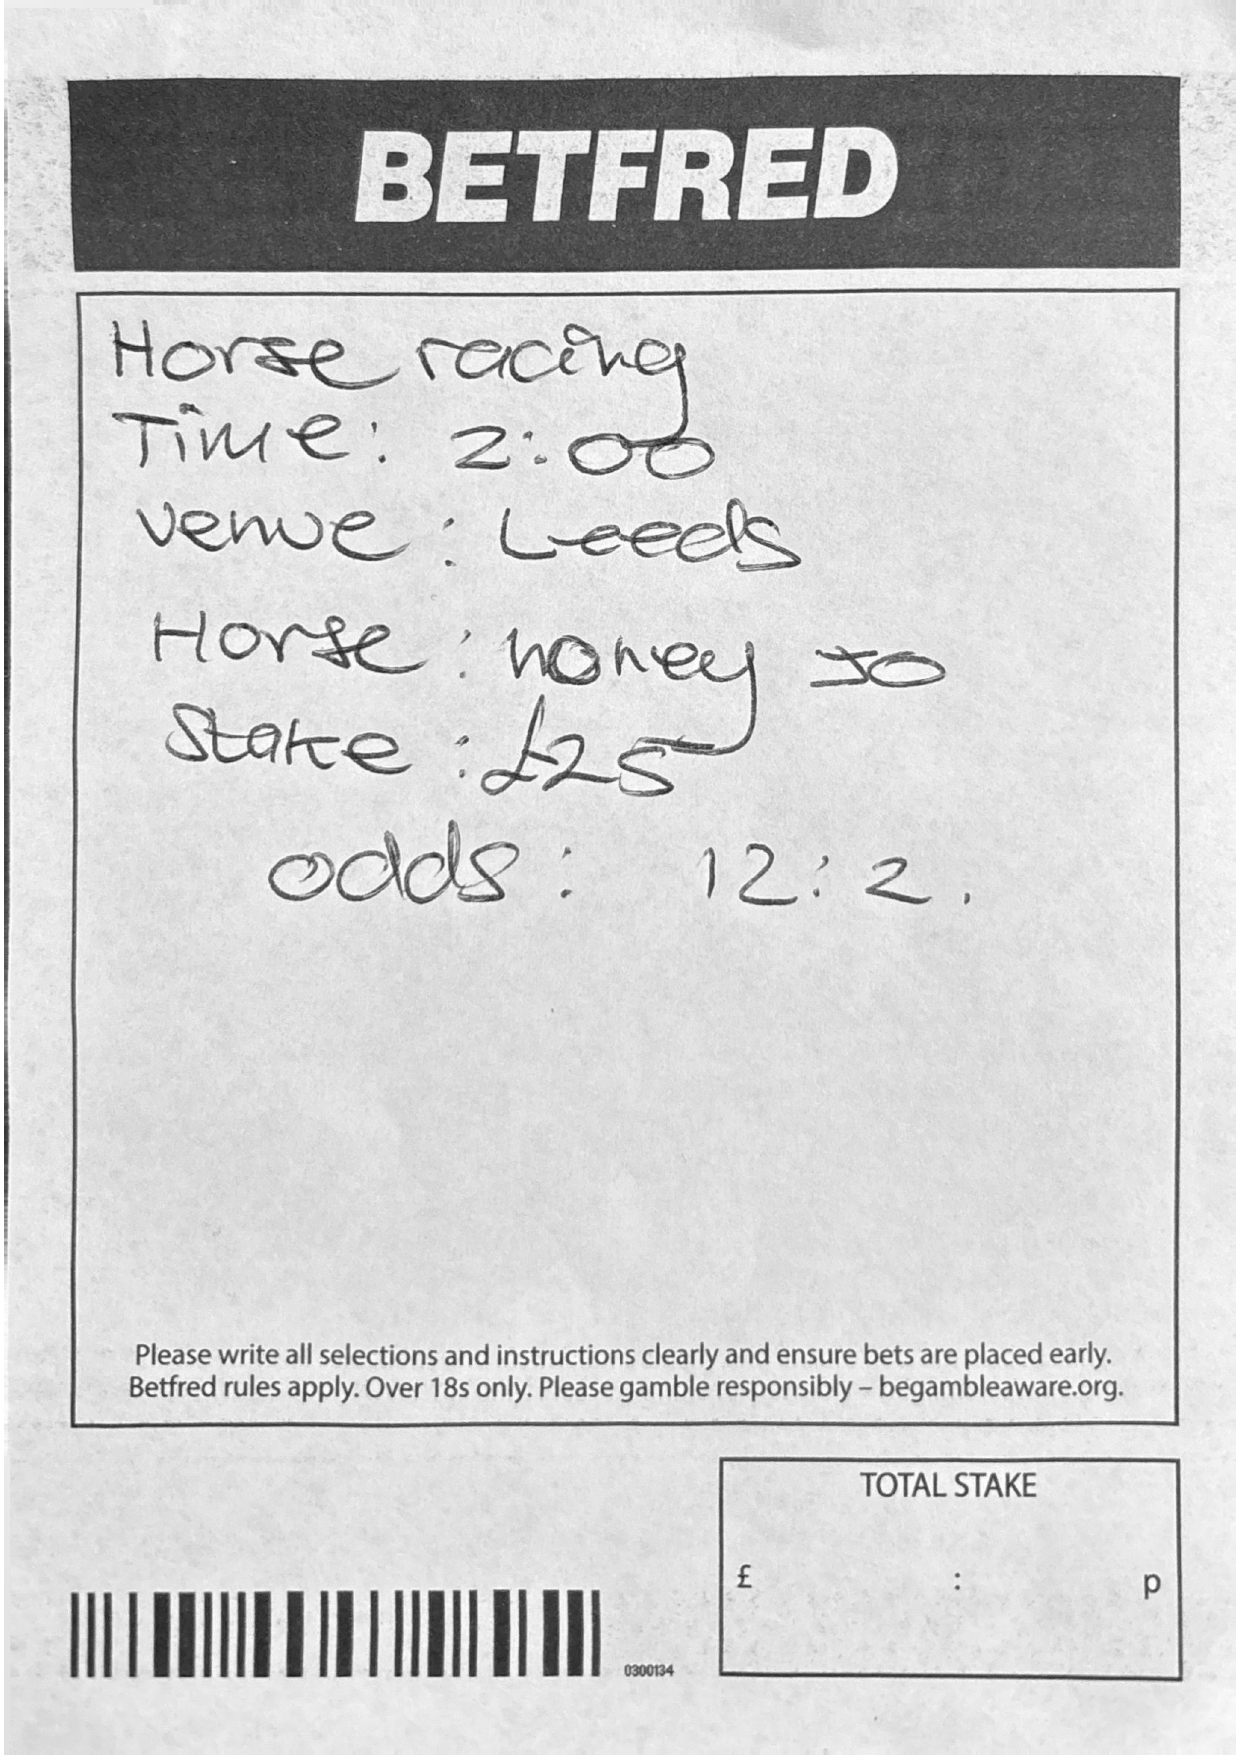 BETFRED
Horse racing
Time: 2:00
venue: Leeds
Horse: honey Jo
Stake: £25
odds: 12:2.
Please write all selections and instructions clearly and ensure bets are placed early.
Betfred rules apply. Over 18s only. Please gamble responsibly – begambleaware.org.
TOTAL STAKE
£ : p
0300134